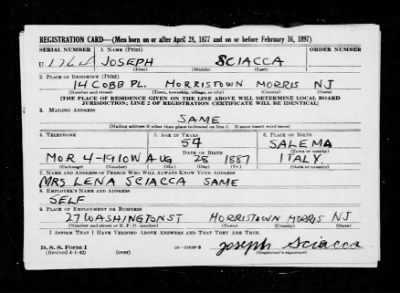 REGISTRATION CARD—(Men born on or after April 28, 1877 and on or before February 16, 1897)
SERIAL NUMBER 1. NAME (Print) ORDER NUMBER
U JOSEPH SCIACCA
(First) (Middle) (Last)
2. PLACE OF RESIDENCE (Print)
14 COBB PL. MORRISTOWN MORRIS NJ
(Number and street) (Town, township, village, or city) (County) (State)
[THE PLACE OF RESIDENCE GIVEN ON THE LINE ABOVE WILL DETERMINE LOCAL BOARD
JURISDICTION; LINE 2 OF REGISTRATION CERTIFICATE WILL BE IDENTICAL]
3. MAILING ADDRESS
SAME
[Mailing address if other than place indicated on line 2. If same insert word same]
4. TELEPHONE 5. AGE IN YEARS 6. PLACE OF BIRTH
54 SALEMA
DATE OF BIRTH (Town or county)
MOR 4-1910W AUG 28 1887 ITALY
(Exchange) (Number) (Mo.) (Day) (Yr.) (State or country)
7. NAME AND ADDRESS OF PERSON WHO WILL ALWAYS KNOW YOUR ADDRESS
MRS LENA SCIACCA SAME
8. EMPLOYER'S NAME AND ADDRESS
SELF
9. PLACE OF EMPLOYMENT OR BUSINESS
27 WASHINGTON ST MORRISTOWN MORRIS NJ
(Number and street or R. F. D. number) (Town) (County) (State)
I AFFIRM THAT I HAVE VERIFIED ABOVE ANSWERS AND THAT THEY ARE TRUE.
D. S. S. Form 1
(Revised 4-1-42) (over) Joseph Sciacca